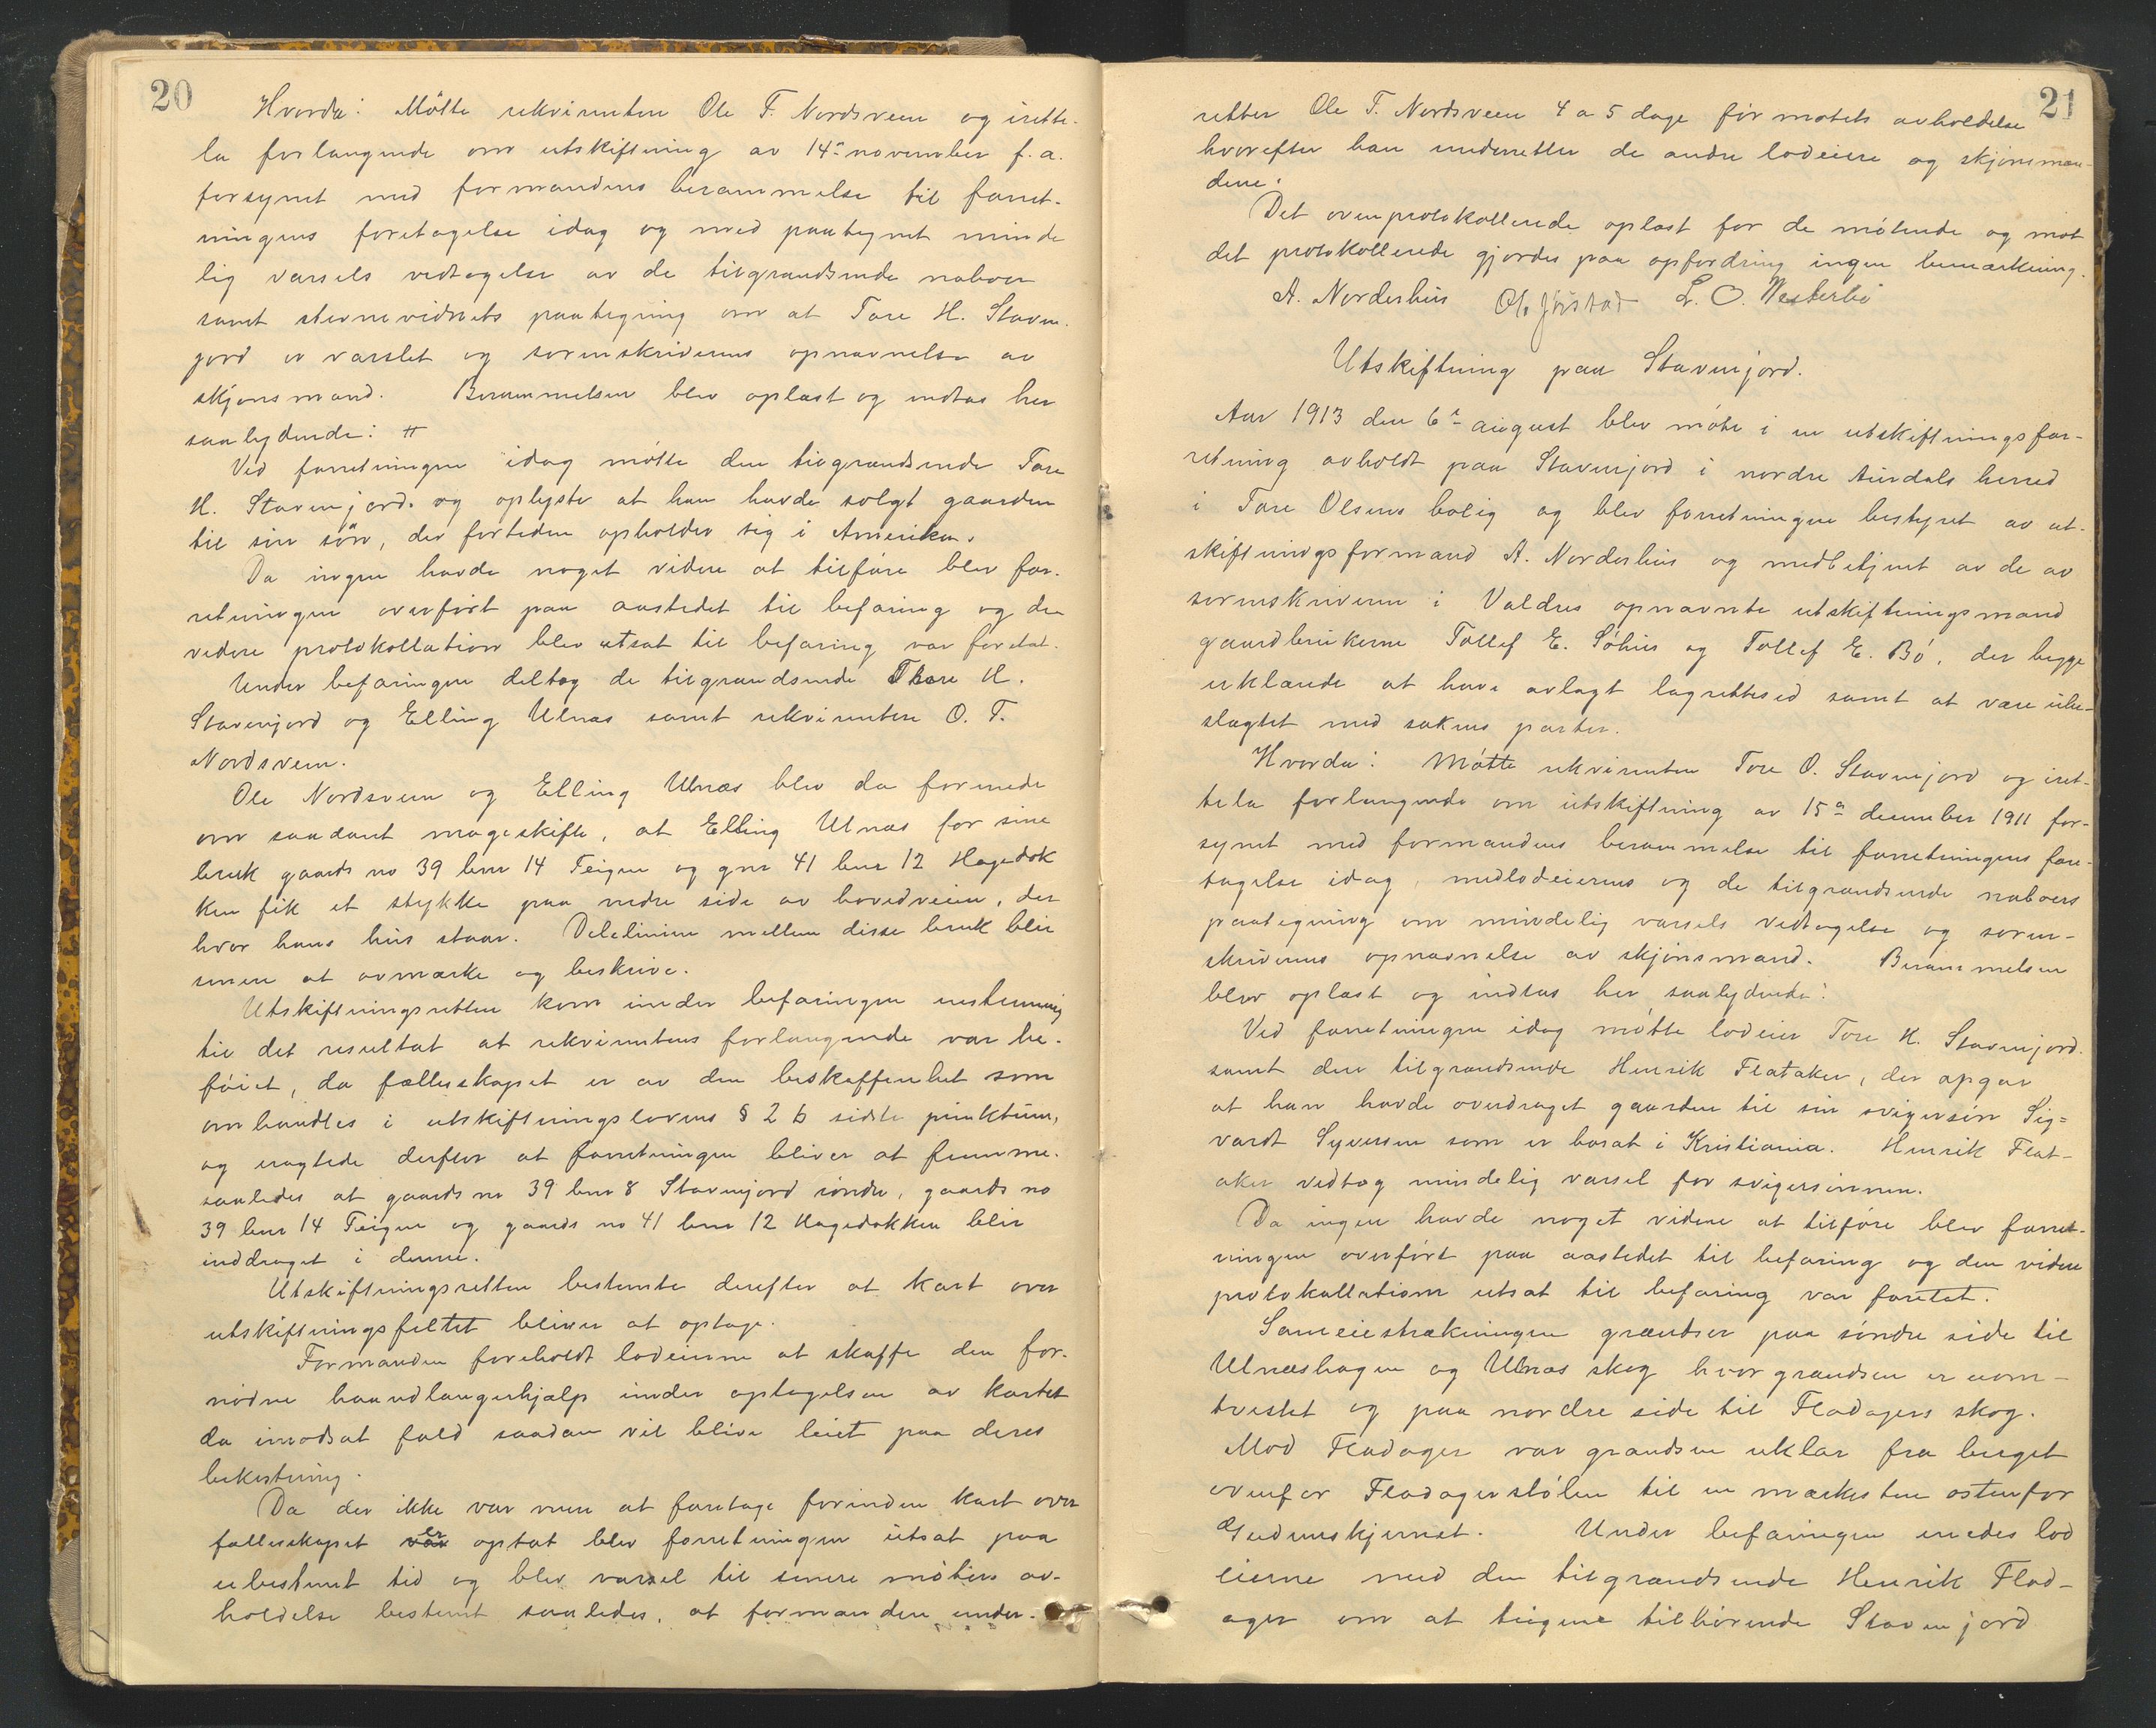 20
Hvorda: Møtte rekvirenten Ole T. Nordsveen og irette-
la forlangende om utskiftning av 14de november f.a.
forsynet med formandens berammelse til forret-
ningens foretagelse idag og med paategnet minde
lig varsels vedtagelse av de tilgrændsende naboer
samt stevnevidnets paategning om at Tore H. Staven-
jord er varslet og sorenskriverens opnævnelse av
skjønsmænd. Berammelsen blev oplæst og indtas her
saalydende: #
Ved forretningen idag møtte den tilgrændsende Tore
H. Stavenjord. og oplyste at han havde solgt gaarden
til sin søn, der fortiden opholder sig i Amerika.
Da ingen havde noget videre at tilføre blev for-
retningen overført paa aastedet til befaring og den
videre protokollation blev utsat til befaring var foretat.
Under befaringen deltog de tilgrændsende Thore H.
Stavenjord og Elling Ulnæs samt rekvirenten O. T.
Nordsveen.
Ole Nordsveen og Elling Ulnæs blev da forenede
om saadant mageskifte, at Elling Ulnæs for sine
bruk gaards no 39 bnr 14 Teigen og gnr 41 bnr 12 Hagedok
ken fik et stykke paa nedre side av hovedveien, der
hvor hans hus staar. Delelinien mellem disse bruk blir
senere at avmærke og beskrive.
Utskiftningsretten kom under befaringen enstemmig
til det resultat at rekvirentens forlangende var be-
føiet, da fællesskapet er av den beskaffenhet som
omhandles i utskiftningslovens § 2 b sidste punktum,
og eragtede derfor at forretningen bliver at fremme.
saaledes at gaards nr 39 bnr 8 Stavenjord søndre, gaards no
39 bnr 14 Teigen og gaards no 41 bnr 12 Hagedokken blir
inddraget i denne.
Utskiftningsretten bestemte derefter at kart over
utskiftningsfeltet bliver at optage.
Formanden foreholdt lodeierne at skaffe den for-
nødne haandlangerhjælp under optagelsen av kartet
da imodsat fald saadan vil blive leiet paa deres
bekostning.
Da der ikke var mere at foretage forinden kart over
fællesskapet er optat blev forretningen utsat paa
ubestemt tid og blev varsel til senere møters av-
holdelse bestemt saaledes, at formanden under-
21
retter Ole T. Nordsveen 4 a 5 dage før møtets avholdelse
hvorefter han underretter de andre lodeiere og skjønsmæn-
dene.
Det ovenprotokollerede oplæst for de møtende og mot
det protokollerede gjordes paa opfordring ingen bemærkning.
A. Norderhus Ole Jøstad L. O. Vesterbø
Utskiftning paa Stavenjord.
Aar 1913 den 6te august blev møte i en utskiftningsfor-
retning avholdt paa Stavenjord i nordre Aurdals herred
i Tore Olsens bolig og blev forretningen bestyret av ut-
skiftningsformand A. Norderhus og medbetjent av de av
sorenskriveren i Valdres opnævnte utskiftningsmænd
gaardbrukerne Tollef E. Søhus og Tollef E. Bø, der begge
erklærede at have avlagt lagrettesed samt at være ube-
slægtet med sakens parter.
Hvorda: Møtte rekvirenten Tore O. Stavenjord og iret-
tela forlangende om utskiftning av 15de december 1911 for-
synet med formandens berammelse til forretningens fore-
tagelse idag, medlodeierens og de tilgrændsende naboers
paategning om mindelig varsels vedtagelse og soren-
skriverens opnævnelse av skjønsmænd. Berammelsen
blev oplæst og indtas her saalydende:
Ved forretningen idag møtte lodeier Tore H. Stavenjord.
samt den tilgrændsende Henrik Flataker, der opgav
at han havde overdraget gaarden til sin svigersøn Sig=
vardt Syversen som er bosat i Kristiania. Henrik Flat-
aker vedtog mindelig varsel for svigersønnen.
Da ingen havde noget videre at tilføre blev forret-
ningen overført paa aastedet til befaring og den videre
protokollation utsat til befaring var foretet.
Sameiestrækningen grændser paa søndre side til
Ulnæshagen og Ulnæs skog hvor grændsen er uom-
tvistet og paa nordre side til Fladagers skog.
Mod Fladager var grændsen uklar fra berget
ovenfor Fladagerstølen til en mærkesten østenfor
Gudmuskjernet. Under befaringen enedes lod
eierne med den tilgrændsende Henrik Flad-
ager om at teigene tilhørende Stavenjord